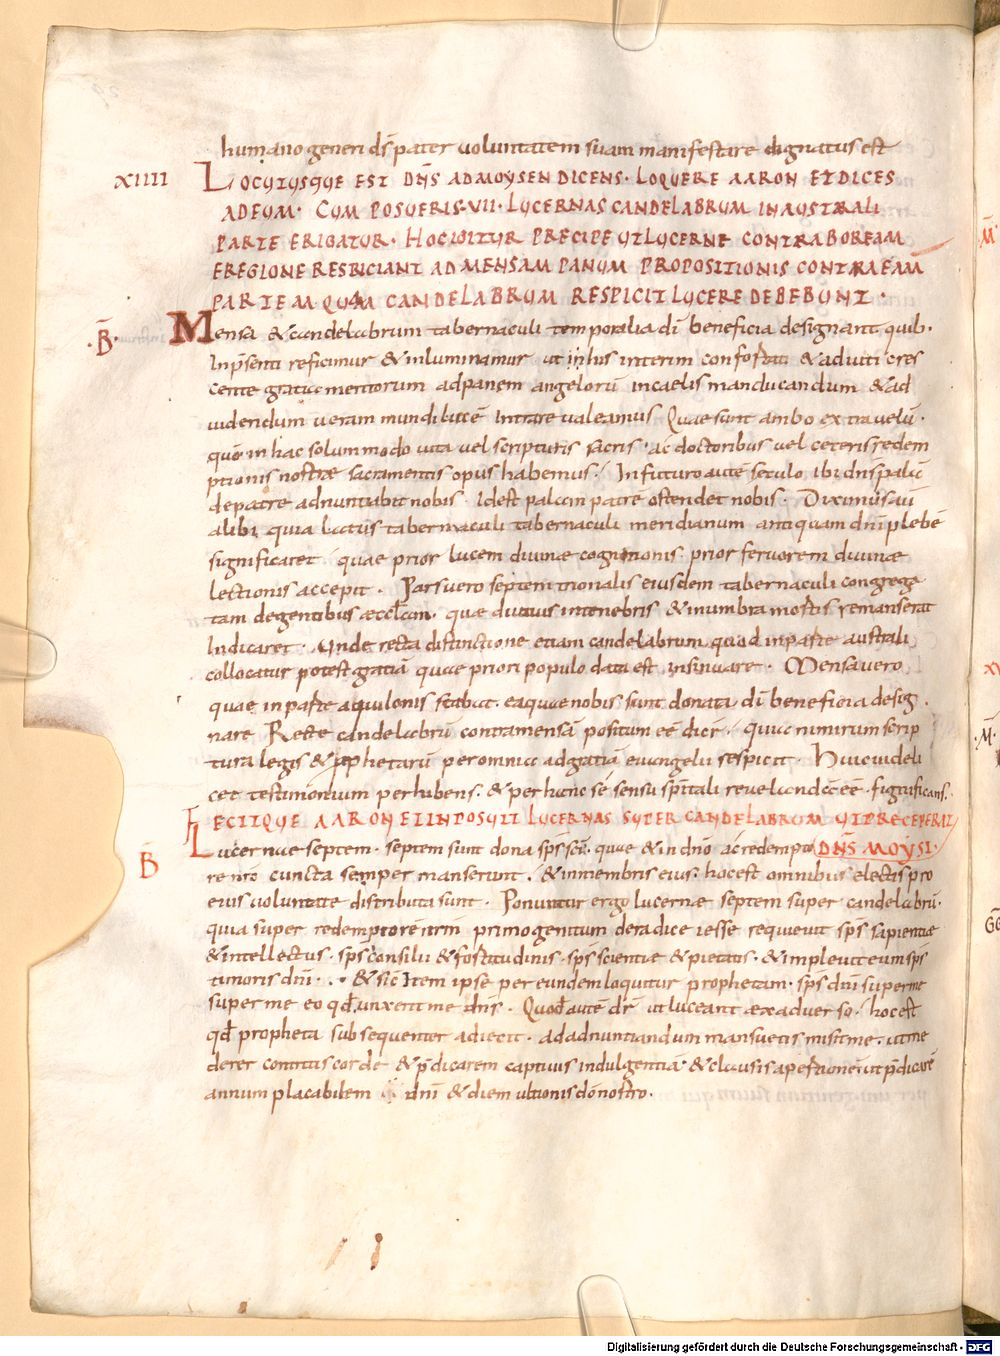 humano generi ds̄ pater uoluntatem suam manifestare dignatus est
XIIII LOCUTUSQUE EST DN̄S AD MOYSEN DICENS· LOQUERE AARON ET DICES
AD EUM· CUM POSUERIS·VII· LUCERNAS CANDELABRUM IN AUSTRALI
PARTE ERIGATUR· HOC IGITUR PRECIPE UT LUCERNE CONTRA BOREAM
E REGIONE RESPICIANT AD MENSAM PANUM PROPOSITIONIS CONTRA EAM
PARTEM QUAM CANDELABRUM RESPICIT LUCERE DEBEBUNT·
·B̄· Mensa & candelabrum tabernaculi temporalia dī beneficia designant quib·
Inp̄senti reficimur & inluminamur ut in his interim confortati & adiuti cres
cente gratia meritorum ad panem angelorū in caelis manducandum & ad
uidendum ueram mundi lucē intrare ualeamus· Quae sunt ambo extra uelū·
quō in hac solummodo uita uel scripturis sacris· ac doctoribus uel ceteris redem
ptionis nostrae sacramentis opus habemus· In futuro autē seculo ibi dn̄s palā
de patre adnuntiabit nobis· Idest palam patrē ostendet nobis· Diximus aū
alibi quia latus tabernaculi tabernaculi meridianum antiquam dn̄i plebē
significaret quae prior lucem diuinae cognitionis prior feruorem diuinae
lectionis accepit· Pars uero septemtrionalis eiusdem tabernaculi congrega
tam de gentibus aeccl̄iam· quae diutius in tenebris & in umbra mortis remanserat
Indicaret· Unde recta distinctione etiam candelabrum quod in parte australi
collocatur potest gratiā quae priori populo data est insinuare· Mensa uero
quae in parte aquilonis stabat· ea quae nobis sunt donata dī beneficia desig
nare Recte candelabrū contra mensā positum eē dicit· quia nimirum scrip
tura legis & prophetarū per omnia ad gratiā euangelii respicit· Huic uideli
cet testimonium perhibens· & per hanc sē sensu sp̄itali reuelandā eē· significans·
FECITQUE AARON ET INPOSUIT LUCERNAS SUPER CANDELABRUM UT PRECEPERAT
B̄ Lucernae septem· septem sunt dona sp̄s sc̄i· quae & in dn̄o ac redempto DN̄S MOYSI·
re nr̄o cuncta semper manserunt· & in membris eius· hoc est omnibus electis pro
eius uoluntate distributa sunt· Ponuntur ergo lucernae septem super candelabrū·
quia super redemptorē nrm̄ primogenitum de radice iesse requieuit sp̄s sapientiae
& intellectus· sp̄s consilii & fortitudinis· sp̄s scientiae & pietatis· & impleuit eum sp̄s
timoris dn̄i· & sic Item ipse per eundem loquitur prophetam· sp̄s dn̄i super me
super me eo qd̄ unxerit me dn̄s· Quod autē dr̄ ut luceant ex aduerso· hoc est
qd̄ propheta subsequenter adiecit· ad adnuntiandum mansuetis misit me· ut me
derer contritis corde & p̄dicarem captiuis indulgentiā· & clausis apertionē· ut p̄dicarē
annum placabilem dn̄i & diem ultionis dō nostro·
Digitalisierung gefördert durch die Deutsche Forschungsgemeinschaft - DFG